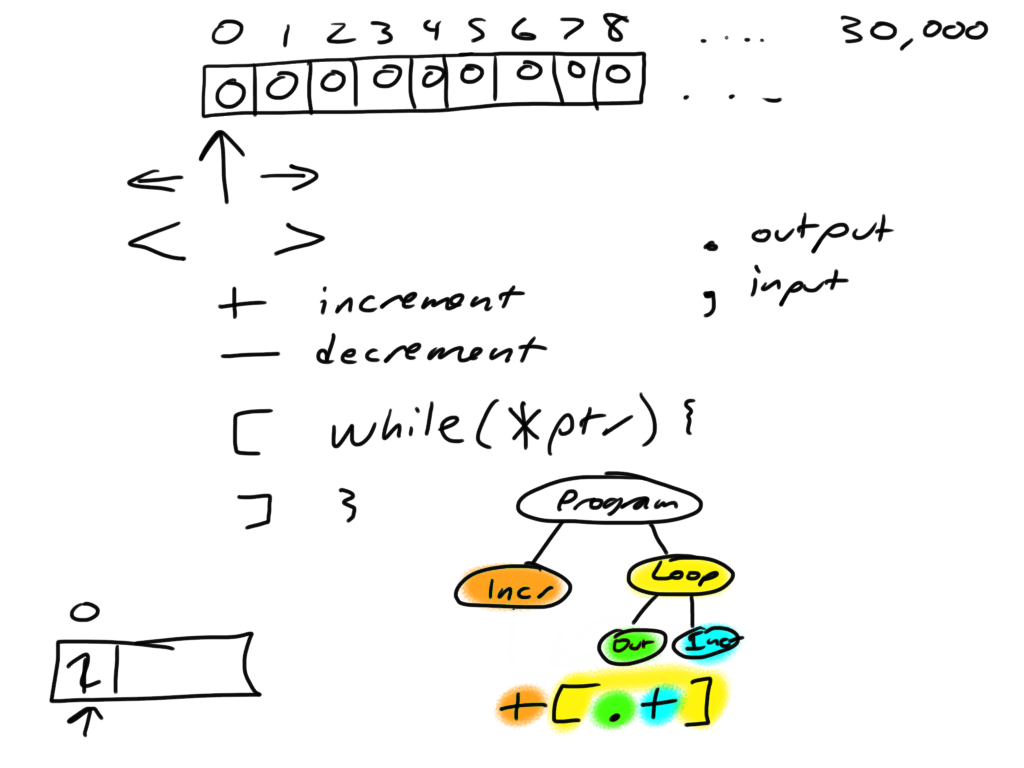 0 1 2 3 4 5 6 7 8 .... 30,000
0 0 0 0 0 0 0 0 0 ...
← ↑ →
< >
. output
, input
+ increment
- decrement
[ while(*ptr) {
] }
Program
Incr Loop
Out Incr
+[.+]
0
1
↑